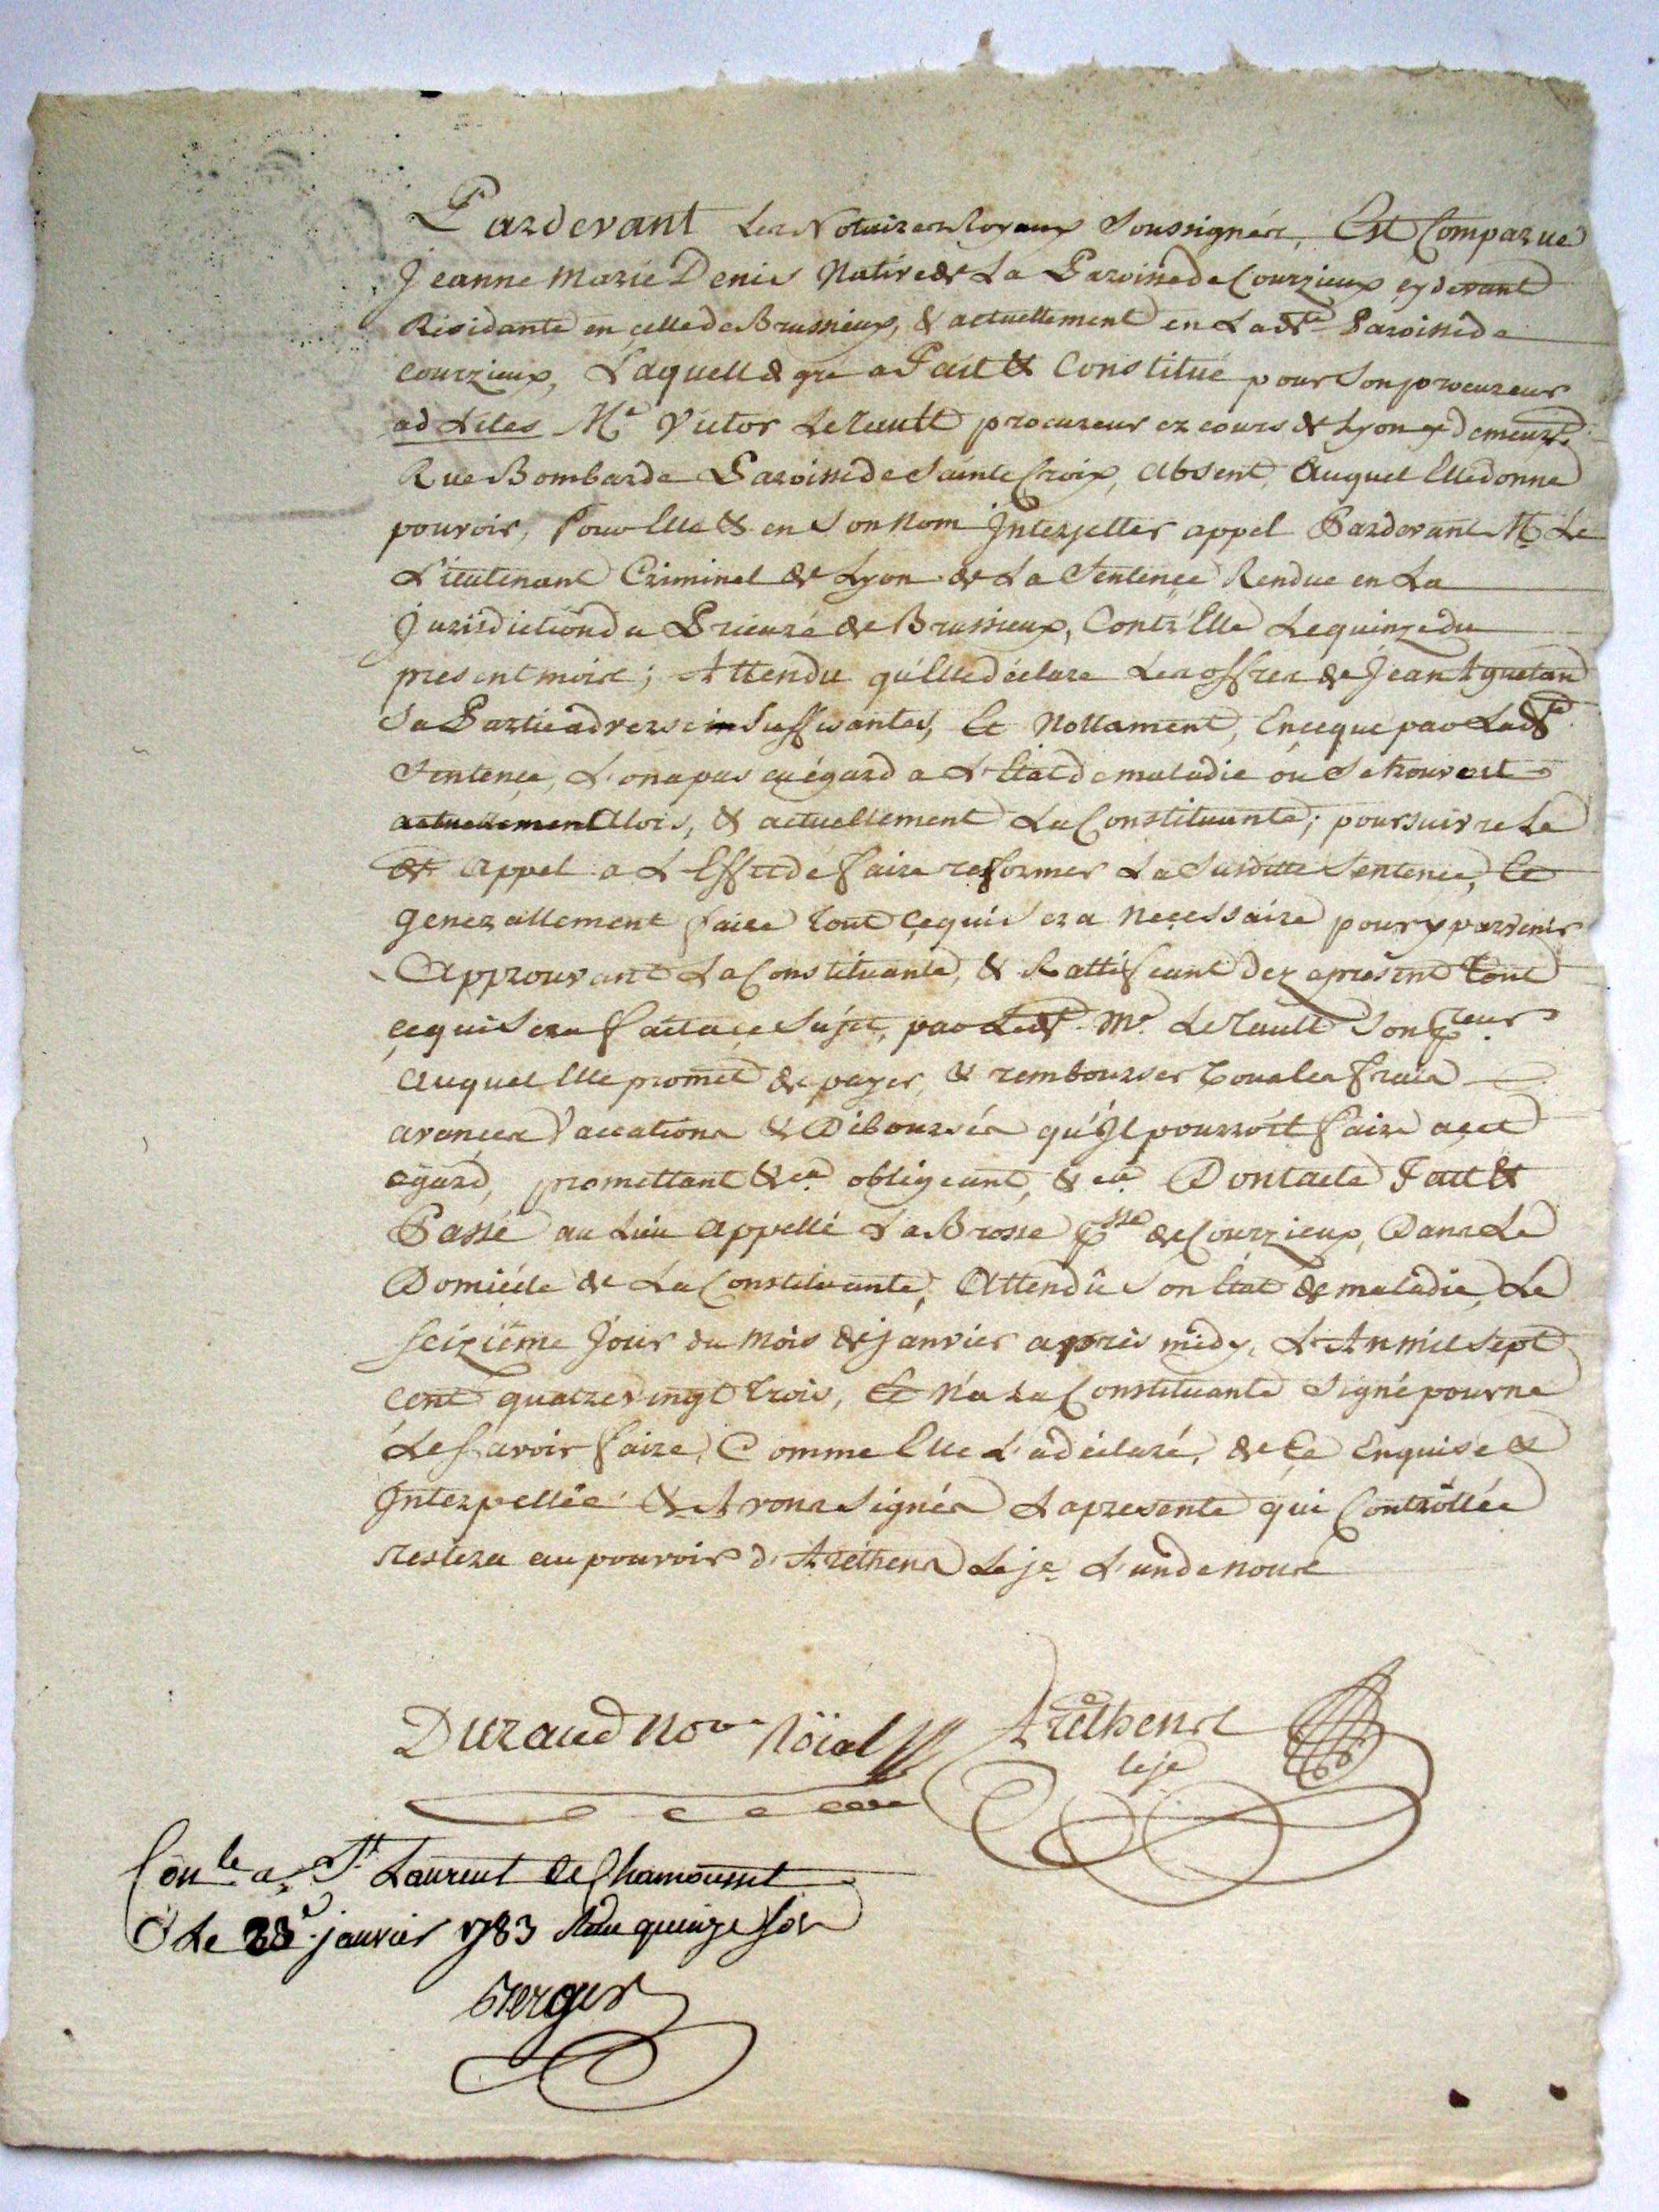 Pardevant Les Notaires Royaux Soussignés, Est Comparue
Jeanne Marie Denis Native de La Paroisse de Courzieux cy devant
Residante en celle de Brussieux, & actuellement en Lad.te Paroisse de
Courzieux, Laquelle de gre a Fait & Constitué pour Son procureur
ad Lites M.e Victor Lerault procureur ez cours de Lyon y demeur.t
Rue Bombarde Paroisse de Sainte Croix, Absent, Auquel Elle donne
pouvoir, Pour Elle & en Son Nom Interjetter appel Pardevant M. Le
Lieutenant Criminel de Lyon de La Sentence Rendue en La
Jurisdiction du Prieuré de Brussieux, Contr'Elle Le quinze du
present mois; Attendu qu'Elle déclare Les offres de Jean Aguetan
Sa Partie adverse insuffisantes, Et Nottament, En ce que par Lad.te
Sentence, L'on a pas eu égard a L'Etat de maladie ou Se trouvoit
actuellement Alors, & actuellement La Constituante; poursuivre Le
dt. Appel a L'Effet de faire reformer La Susditte Sentence, Et
generallement faire tout ce qui Sera necessaire pour y parvenir
Approuvant La Constituante, & Rattifiant dez apresent tout
ce qui Sera fait a ce Sujet, par Led.t M.e Lerault Son p.reur
Auquel Elle promet de payer, & rembourser tous les frais
avances Vaccations & Déboursés qu'Il pourroit faire a cet
egard, promettant &ca. obligeant, &ca. Dont acte Fait &
Passé au Lieu Appellé La Brosse p.sse de Courzieux, Dans Le
Domicile de La Constituante, Attendû Son Etat de maladie, Le
Seizième Jour du Mois de Janvier après midy, L'An mil Sept
Cent quatre vingt trois, Et N'a La Constituante Signé pour ne
Le Savoir faire, Comme Elle L'a déclaré, de Ce Enquise &
Interpellée & Avons Signés La presente qui Controllée
restera au pouvoir d'Aréthens Le je. L'un de nous
Duraud No.re Röial Aréthens
leje
Con.le a St Laurent de Chamousset
Le 28e janvier 1783 Reçu quinze Sols
Berger